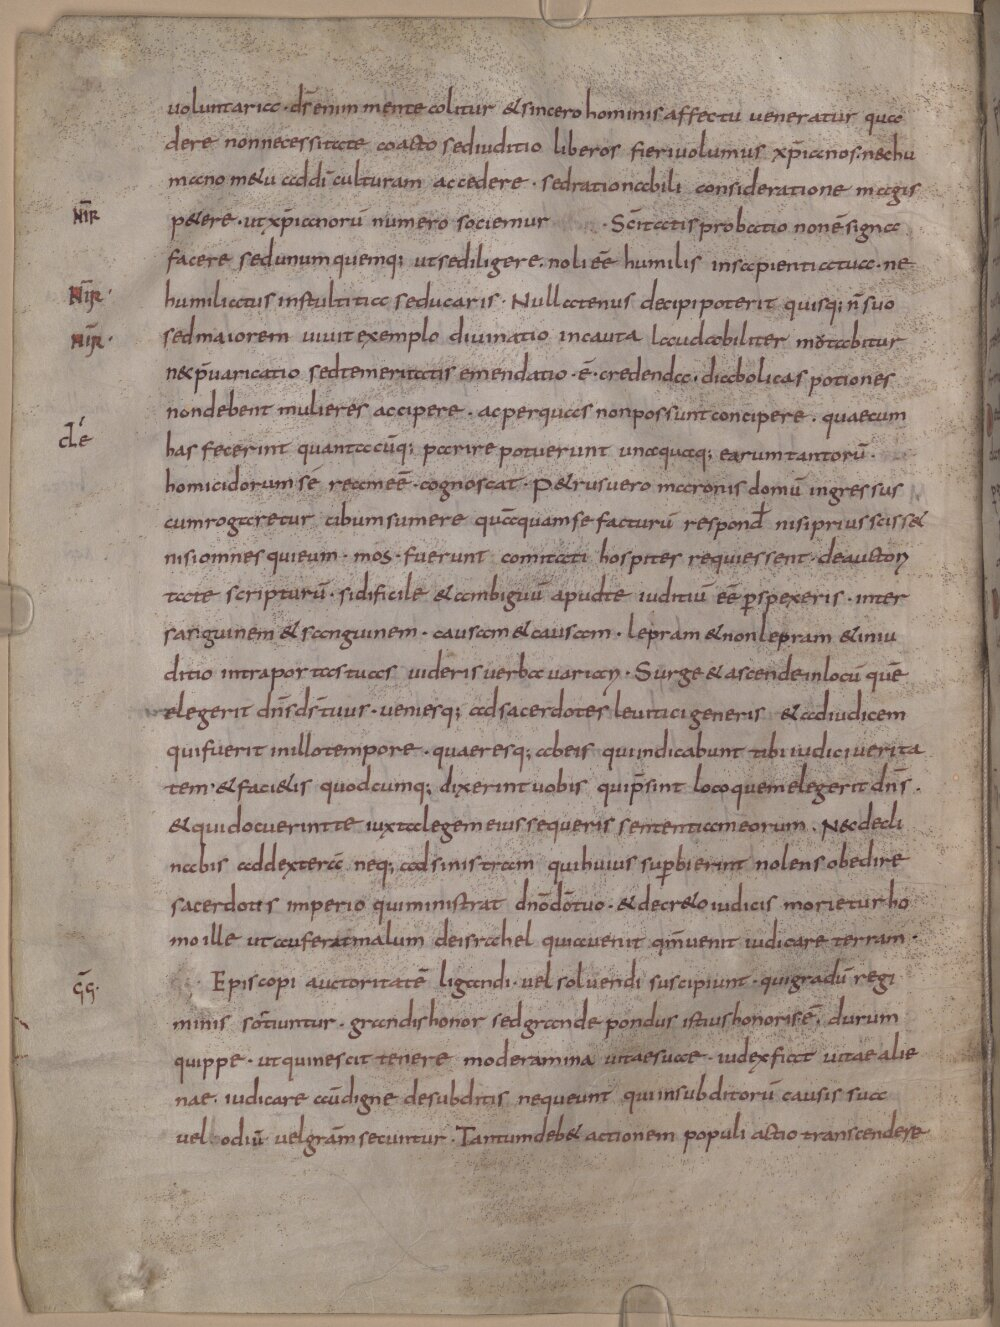 uoluntaria · ds̄ enim mente colitur & sincero hominis affectu ueneratur qua
dere non necessitate coacto sed iuditio liberos fieri uolumus xp̄ianos. nec hu
mano metu ad dī culturam accedere · sed rationabili consideratione magis
petere · ut xp̄ianorū numero sociemur · Sc̄itatis probatio non ē signa
facere sed unumquemq; ut se diligere. noli eē humilis in sapientia tua · ne
Nīr
humiliatus in stultitia seducaris · Nullatenus decipi poterit quisq; n̄ suo
Nīr·
sed maiorem uiuit exemplo diuinatio incauta laudabiliter mōtabitur
Nīr·
nec p̄uaricatio sed temeritatis emendatio · ē · credenda · diabolicas potiones
non debent mulieres accipere · ac per quas non possunt concipere · quaecum
clē
has fecerint quantacūq; parire potuerunt unaquaq; earum tantorū ·
homicidorum se ream eē · cognoscat · Petrus uero maronis domū ingressus
cum rogaretur cibum sumere qua̅quam se facturū respond̄ nisi prius scisset
nisi omnes qui eum · mos · fuerunt comitati hospites requiessent · de auctori
tate scripturū · si dificile & ambiguū apud te iuditiū eē p̄spexeris · inter
sanguinem & sanguinem · causam & causam · lepram & non lepram & in iu
ditio intra portas tuas uideris uerba uariari · Surge & ascende in locū quē
elegerit dn̄s ds̄ tuus · ueniesq; ad sacerdotes leuitici generis & ad iudicem
qui fuerit in illo tempore · quaeresq; ab eis qui indicabunt tibi iudici uerita
tem · & facietis quodcumq; dixerint uobis qui p̄sint loco quem elegerit dn̄s ·
& qui docuerint te iuxta legem eius sequeris sententiam eorum · Nec decli
nabis ad dexterā neq; ad sinistram qui huius sup̄bierint nolens obedire
sacerdotis imperio qui ministrat dn̄o dō tuo · & decreto iudicis morietur ho
mo ille ut auferat malum de israhel quia uenit qm̄ uenit iudicare terram ·
ḡḡ·
Episcopi auctoritatē ligandi · uel soluendi suscipiunt · qui gradū regi
minis sortiuntur · grandis honor sed grande pondus istius honoris ē. durum
quippe · ut qui nescit tenere moderamina uitae suae · iudex fiat uitae alie
nae. iudicare aūdigne de subditis nequeunt qui in subditorū causis sua
uel odiū uel grām secuntur · Tantum debet actionem populi actio transcendere